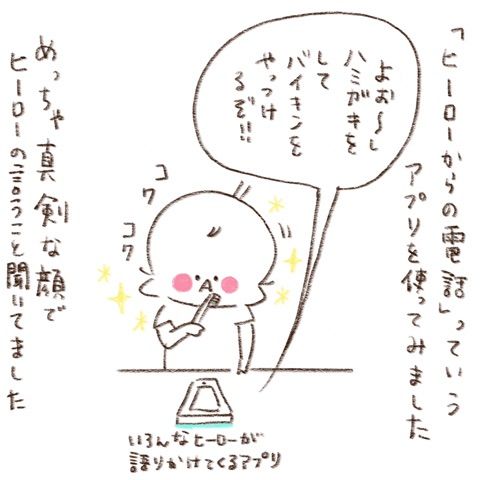 「ヒーローからの電話」っていう
アプリを使ってみました
よお〜し
ハミガキを
して
バイキンを
やっつけ
るぞ!!
コク
コク
めっちゃ真剣な顔で
ヒーローの言うこと聞いてました
いろんなヒーローが
語りかけてくるアプリ